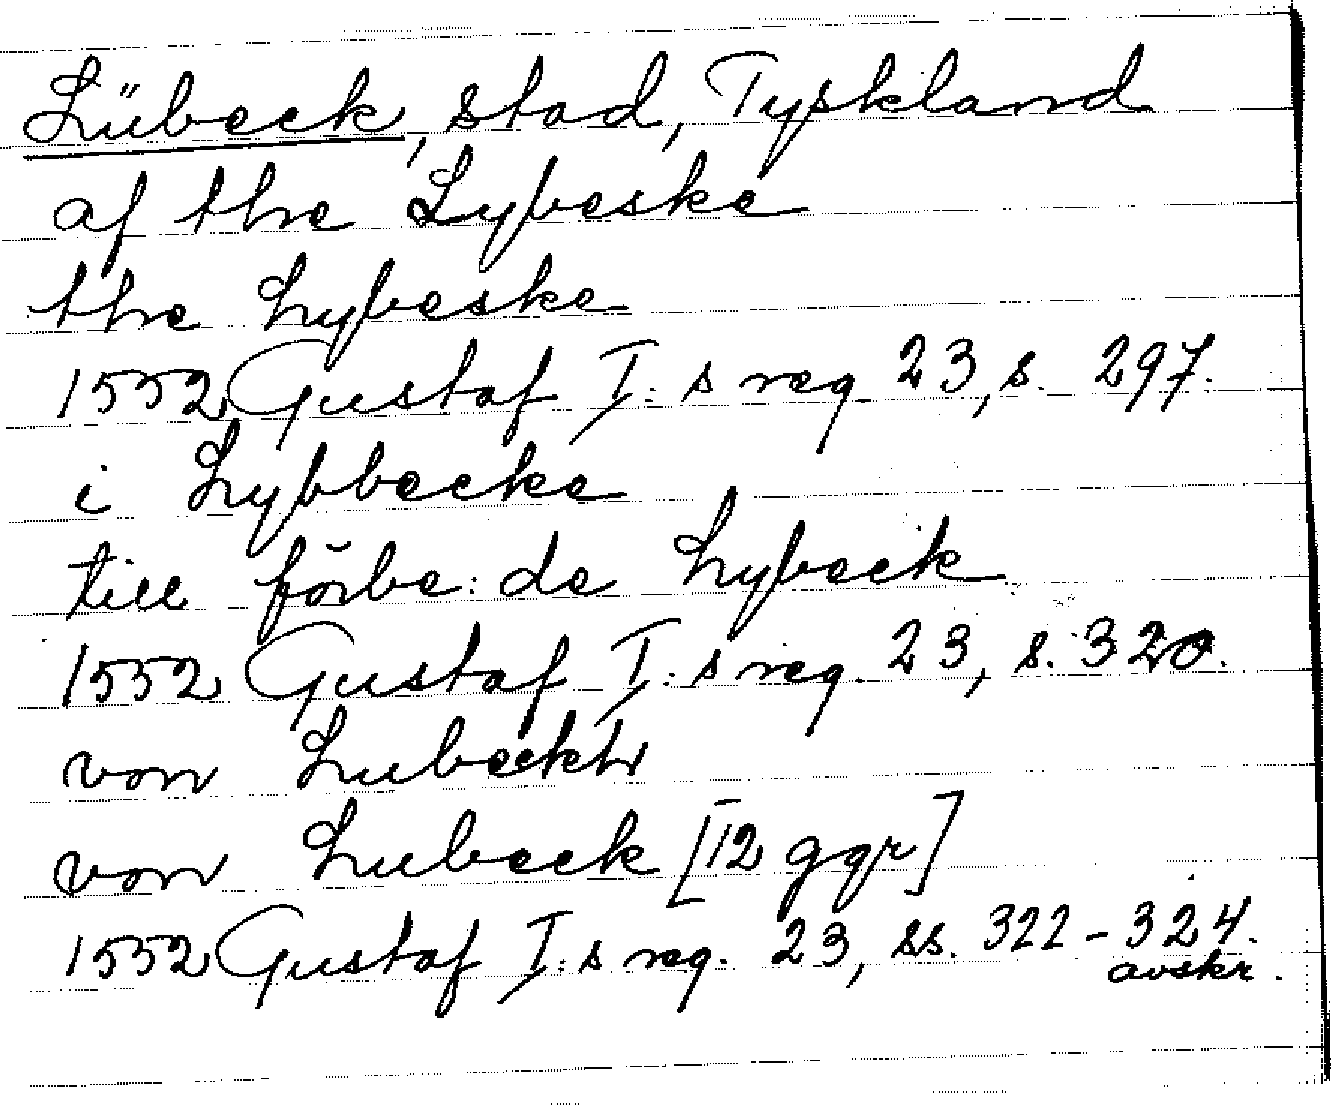 Lübeck, stad, Tyskland
af the Lybeske
the Lybeske
1552 Gustaf I:s reg. 23, s. 297.
i Lybbecke
till förbe:de Lybeck
1552 Gustaf I:s reg. 23, s. 320.
von Lubeckh
von Lubeck [12 ggr]
1552 Gustaf I:s reg. 23, ss. 322-324.
avskr.